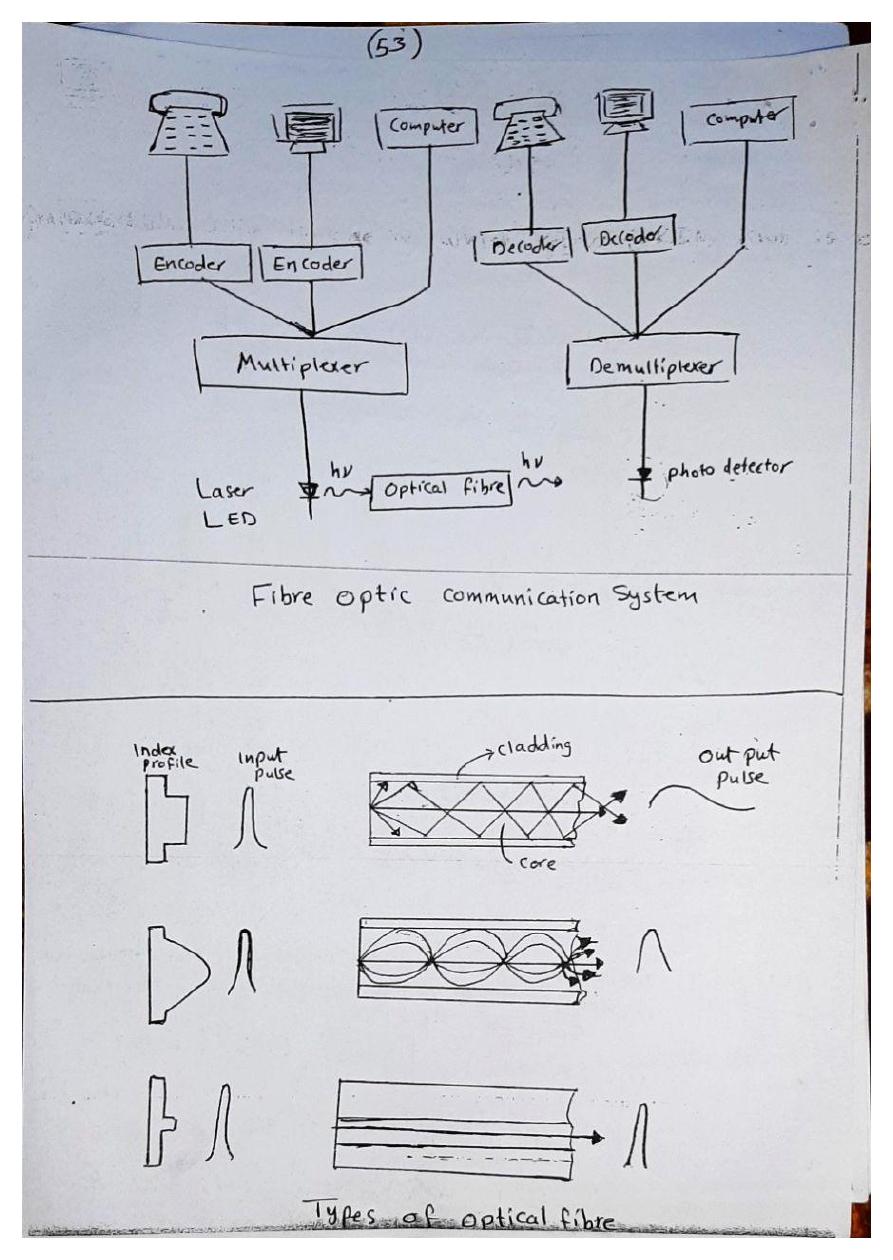 (53)
Computer
Computer
Encoder
Encoder
Decoder
Decoder
Multiplexer
Demultiplexer
Laser
LED
hν
Optical fibre
hν
photo detector
Fibre optic communication System
Index
profile
Input
pulse
cladding
core
Out put
pulse
Types of optical fibre